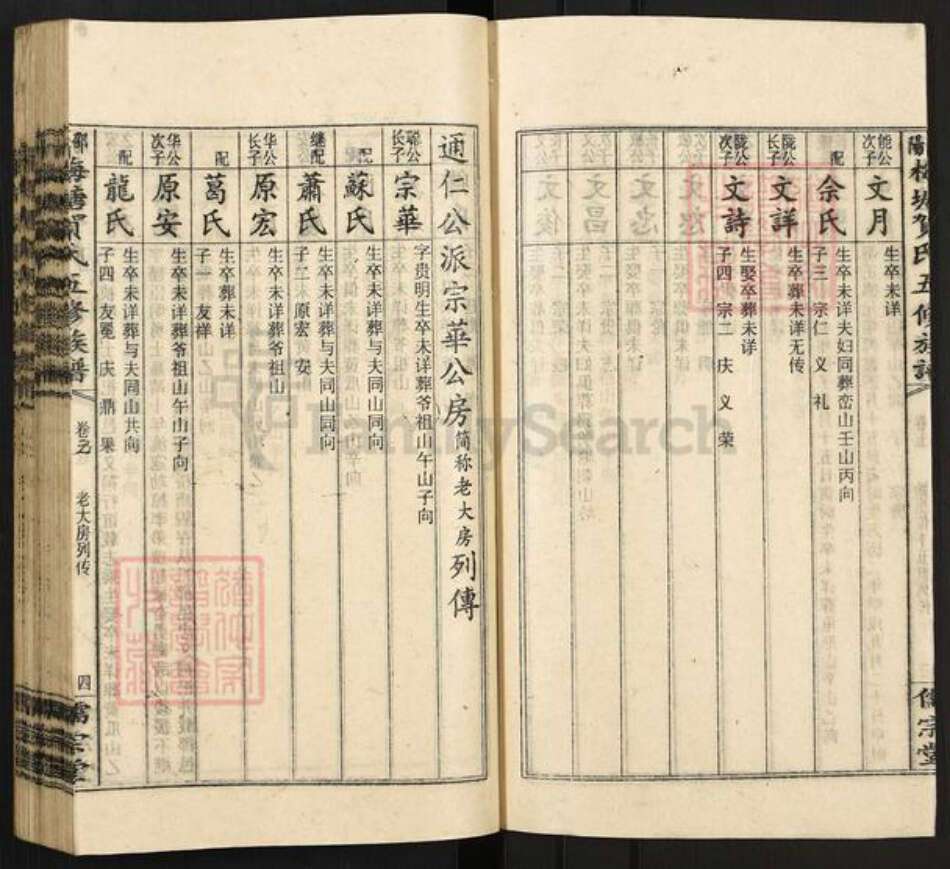 能公次子 文月 生卒未详
配 佘氏 生卒未详夫妇同葬峦山壬山丙向
子三 宗仁 义 礼
陇公长子 文詳 生卒葬未详无传
陇公次子 文詩 生娶卒葬未详
子四 宗二 庆 义 荣
通仁公派宗華公房简称老大房列傳
聪公长子 宗華 字贵明生卒未详葬爷祖山午山子向
配 蘇氏 生卒未详葬与夫同山同向
继配 蕭氏 生卒未详葬与夫同山同向
子二 原宏 安
华公长子 原宏 生卒未详葬爷祖山
配 葛氏 生卒葬未详
子一 友样
华公次子 原安 生卒未详葬爷祖山午山子向
配 龍氏 生卒未详葬与夫同山共向
子四 友冕 庆 鼎 果
梅塘賀氏五修族譜
老大房列传
四
儒宗堂
FamilySearch